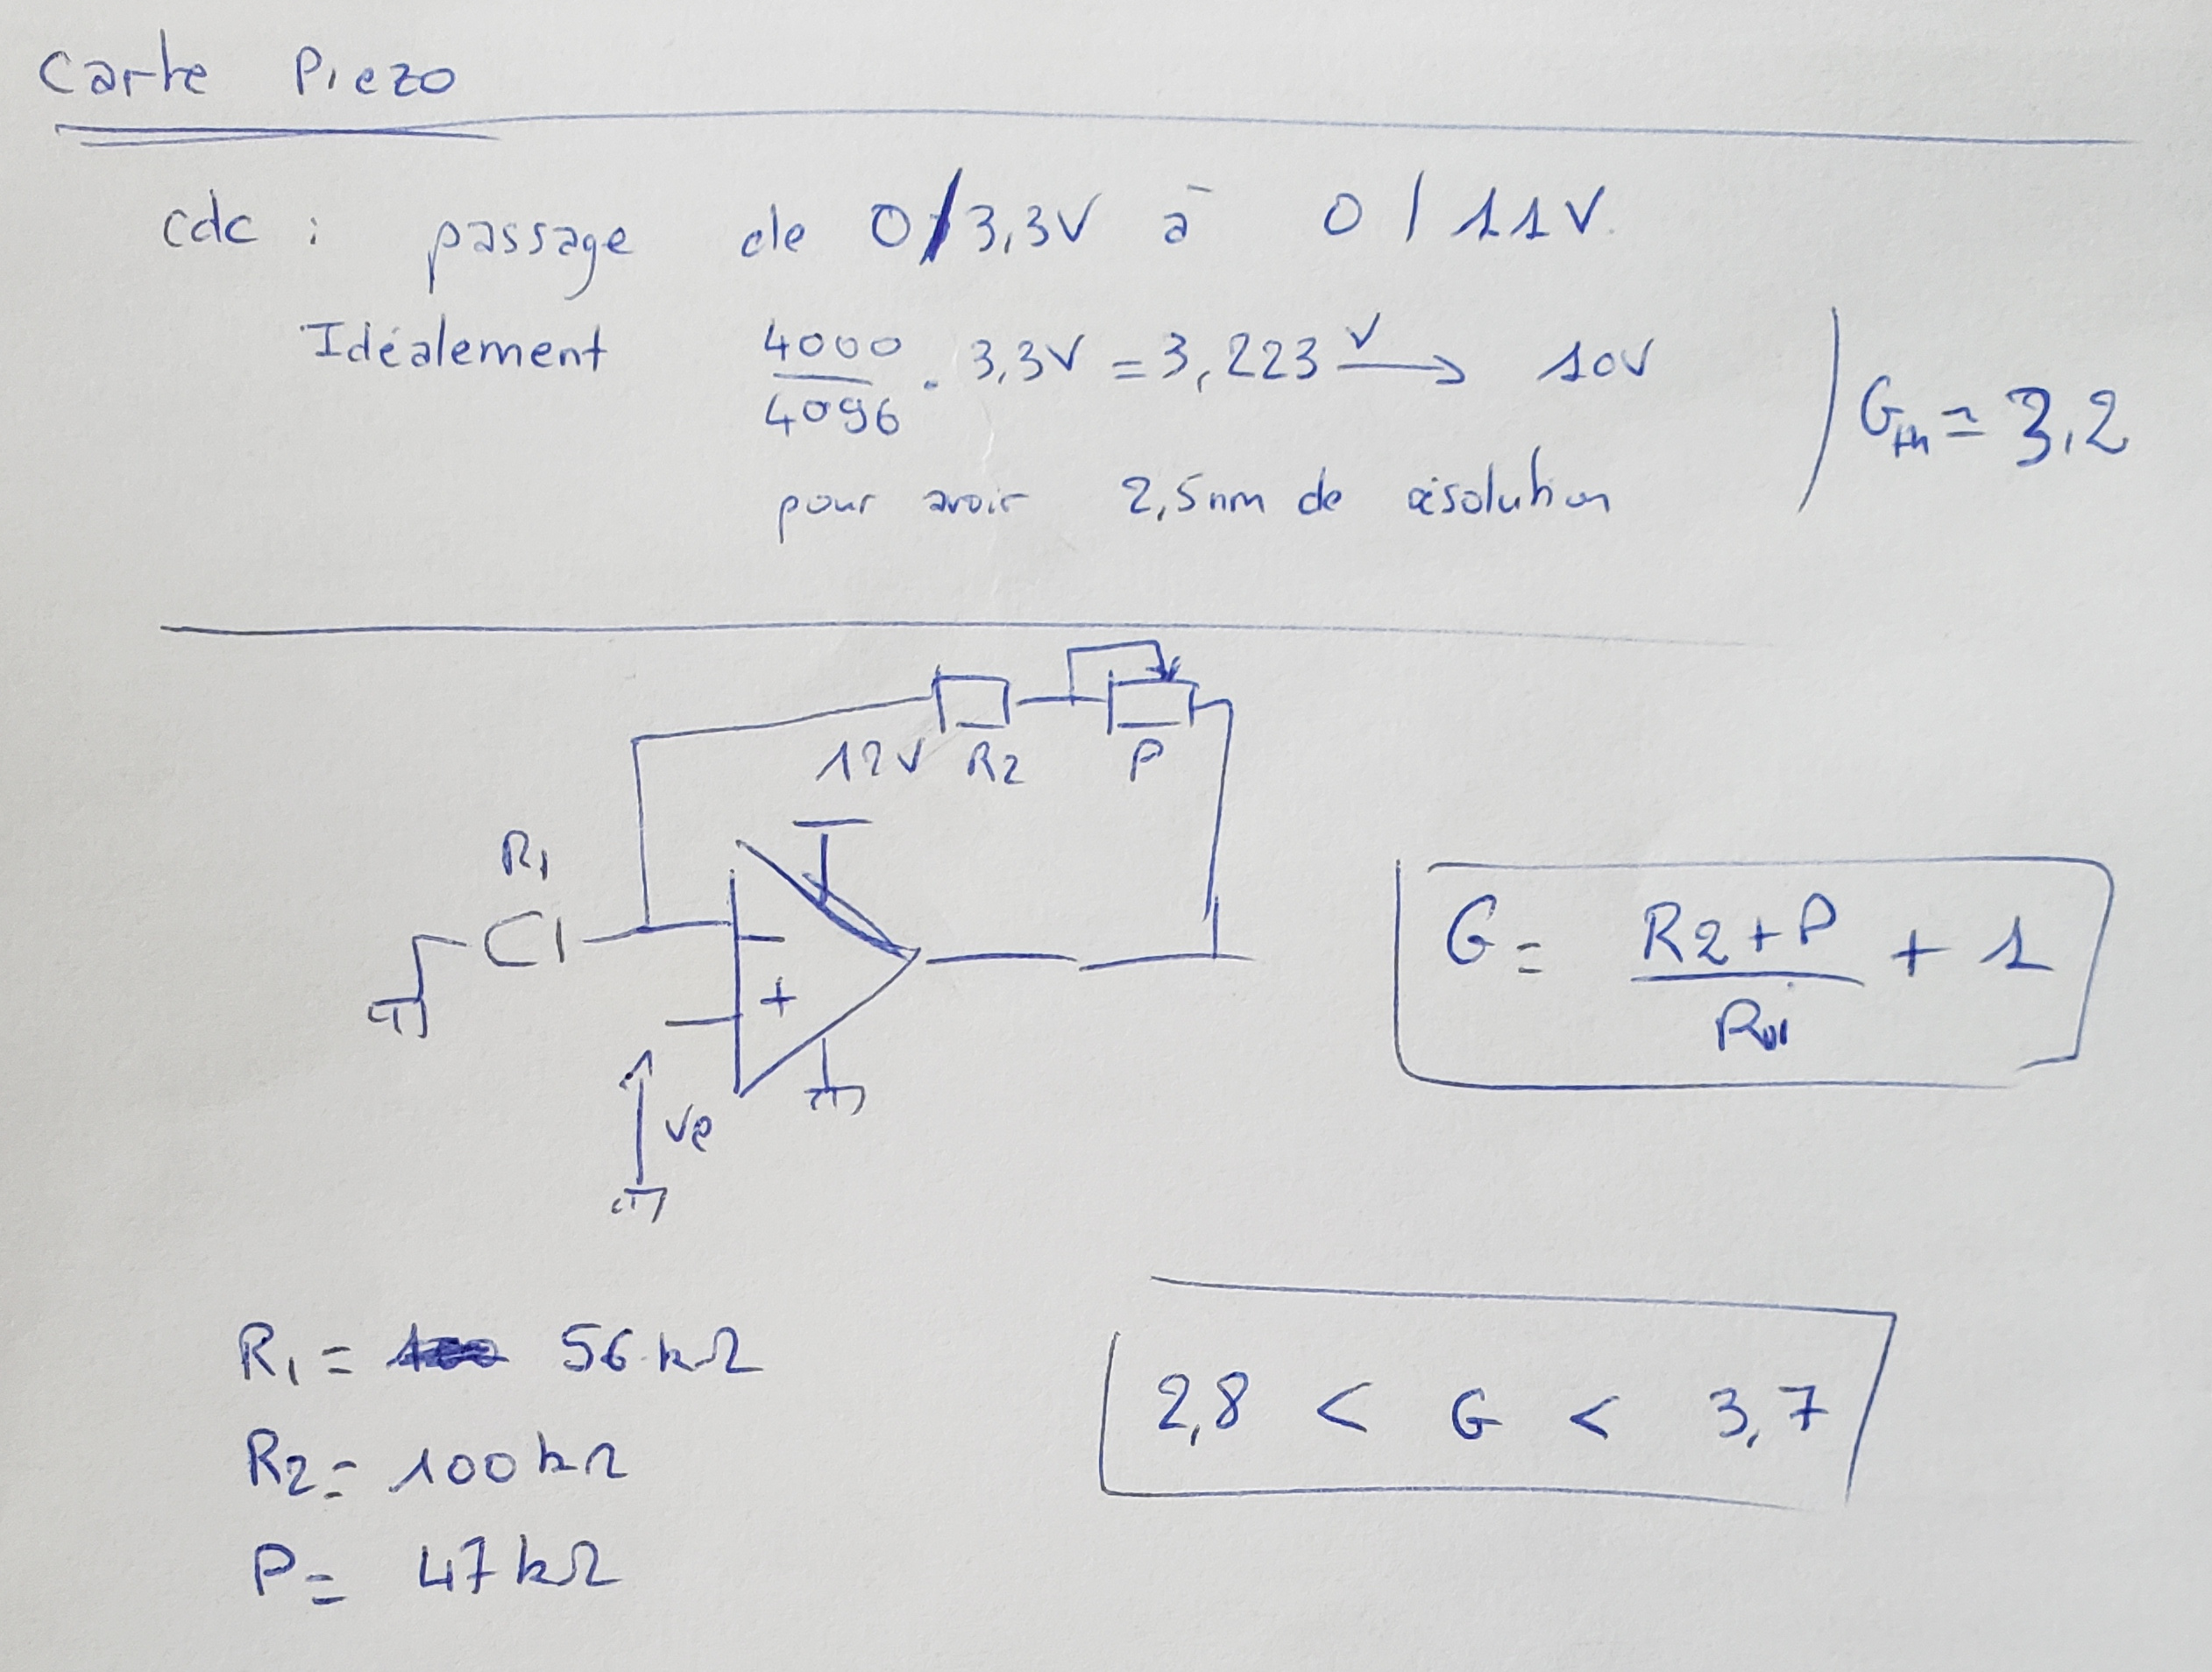 Carte Piezo
cdc : passage de 0/3,3V à 0/11V.
Idéalement 4000/4096 . 3,3V = 3,223 V → 10V
Gth = 3,2
pour avoir 2,5nm de résolution
12V R2 P
R1
-
+
Ve
G = (R2+P)/R1 + 1
R1 = 56 kΩ
R2 = 100 kΩ
P = 47 kΩ
2,8 < G < 3,7